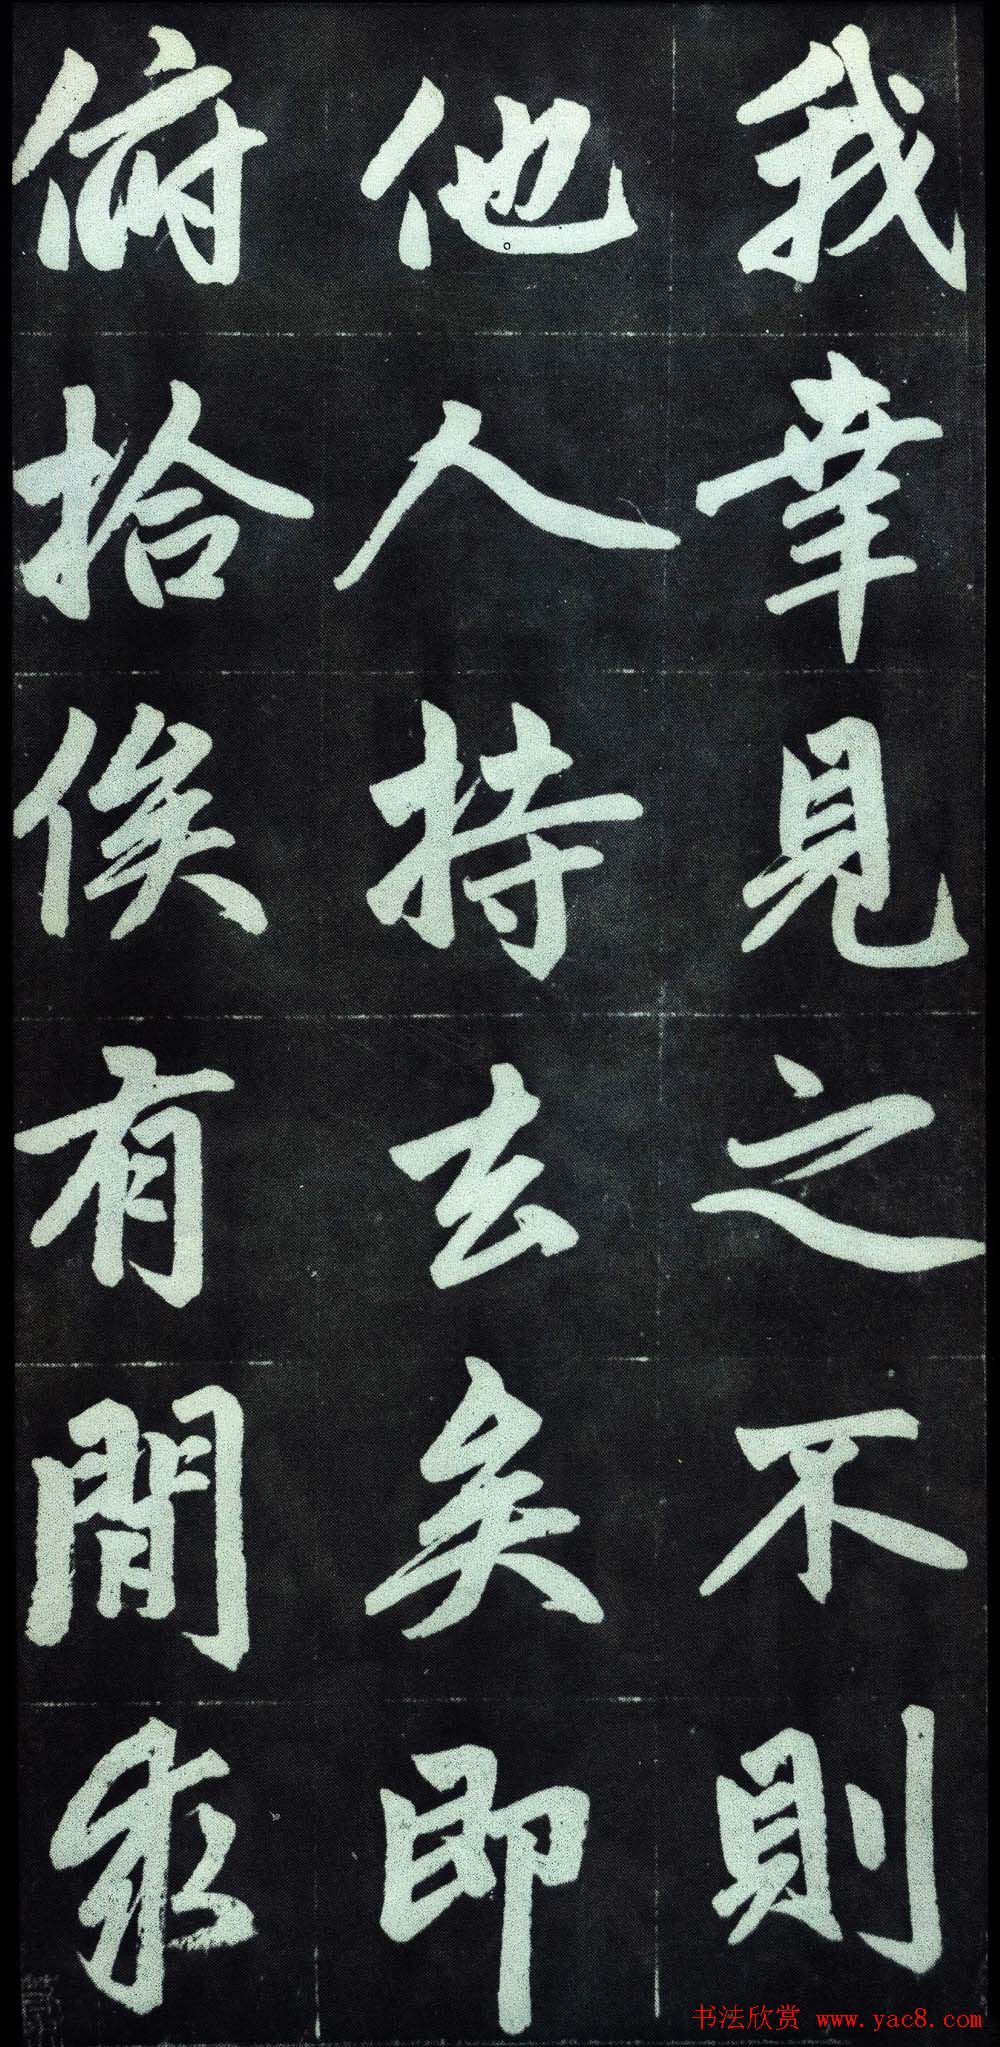 我幸見之不則
他人持去矣即
俯拾俟有間求
书法欣赏 www.yac8.com